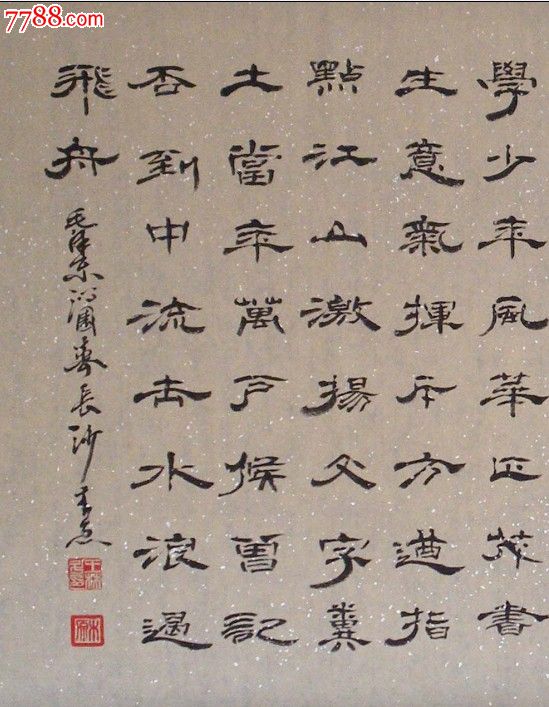 7788.com
學少年風華正茂書
生意氣揮斥方遒指
點江山激揚文字糞
土當年萬戶候曾記
否到中流击水浪遏
飛舟
毛泽东沁園春長沙